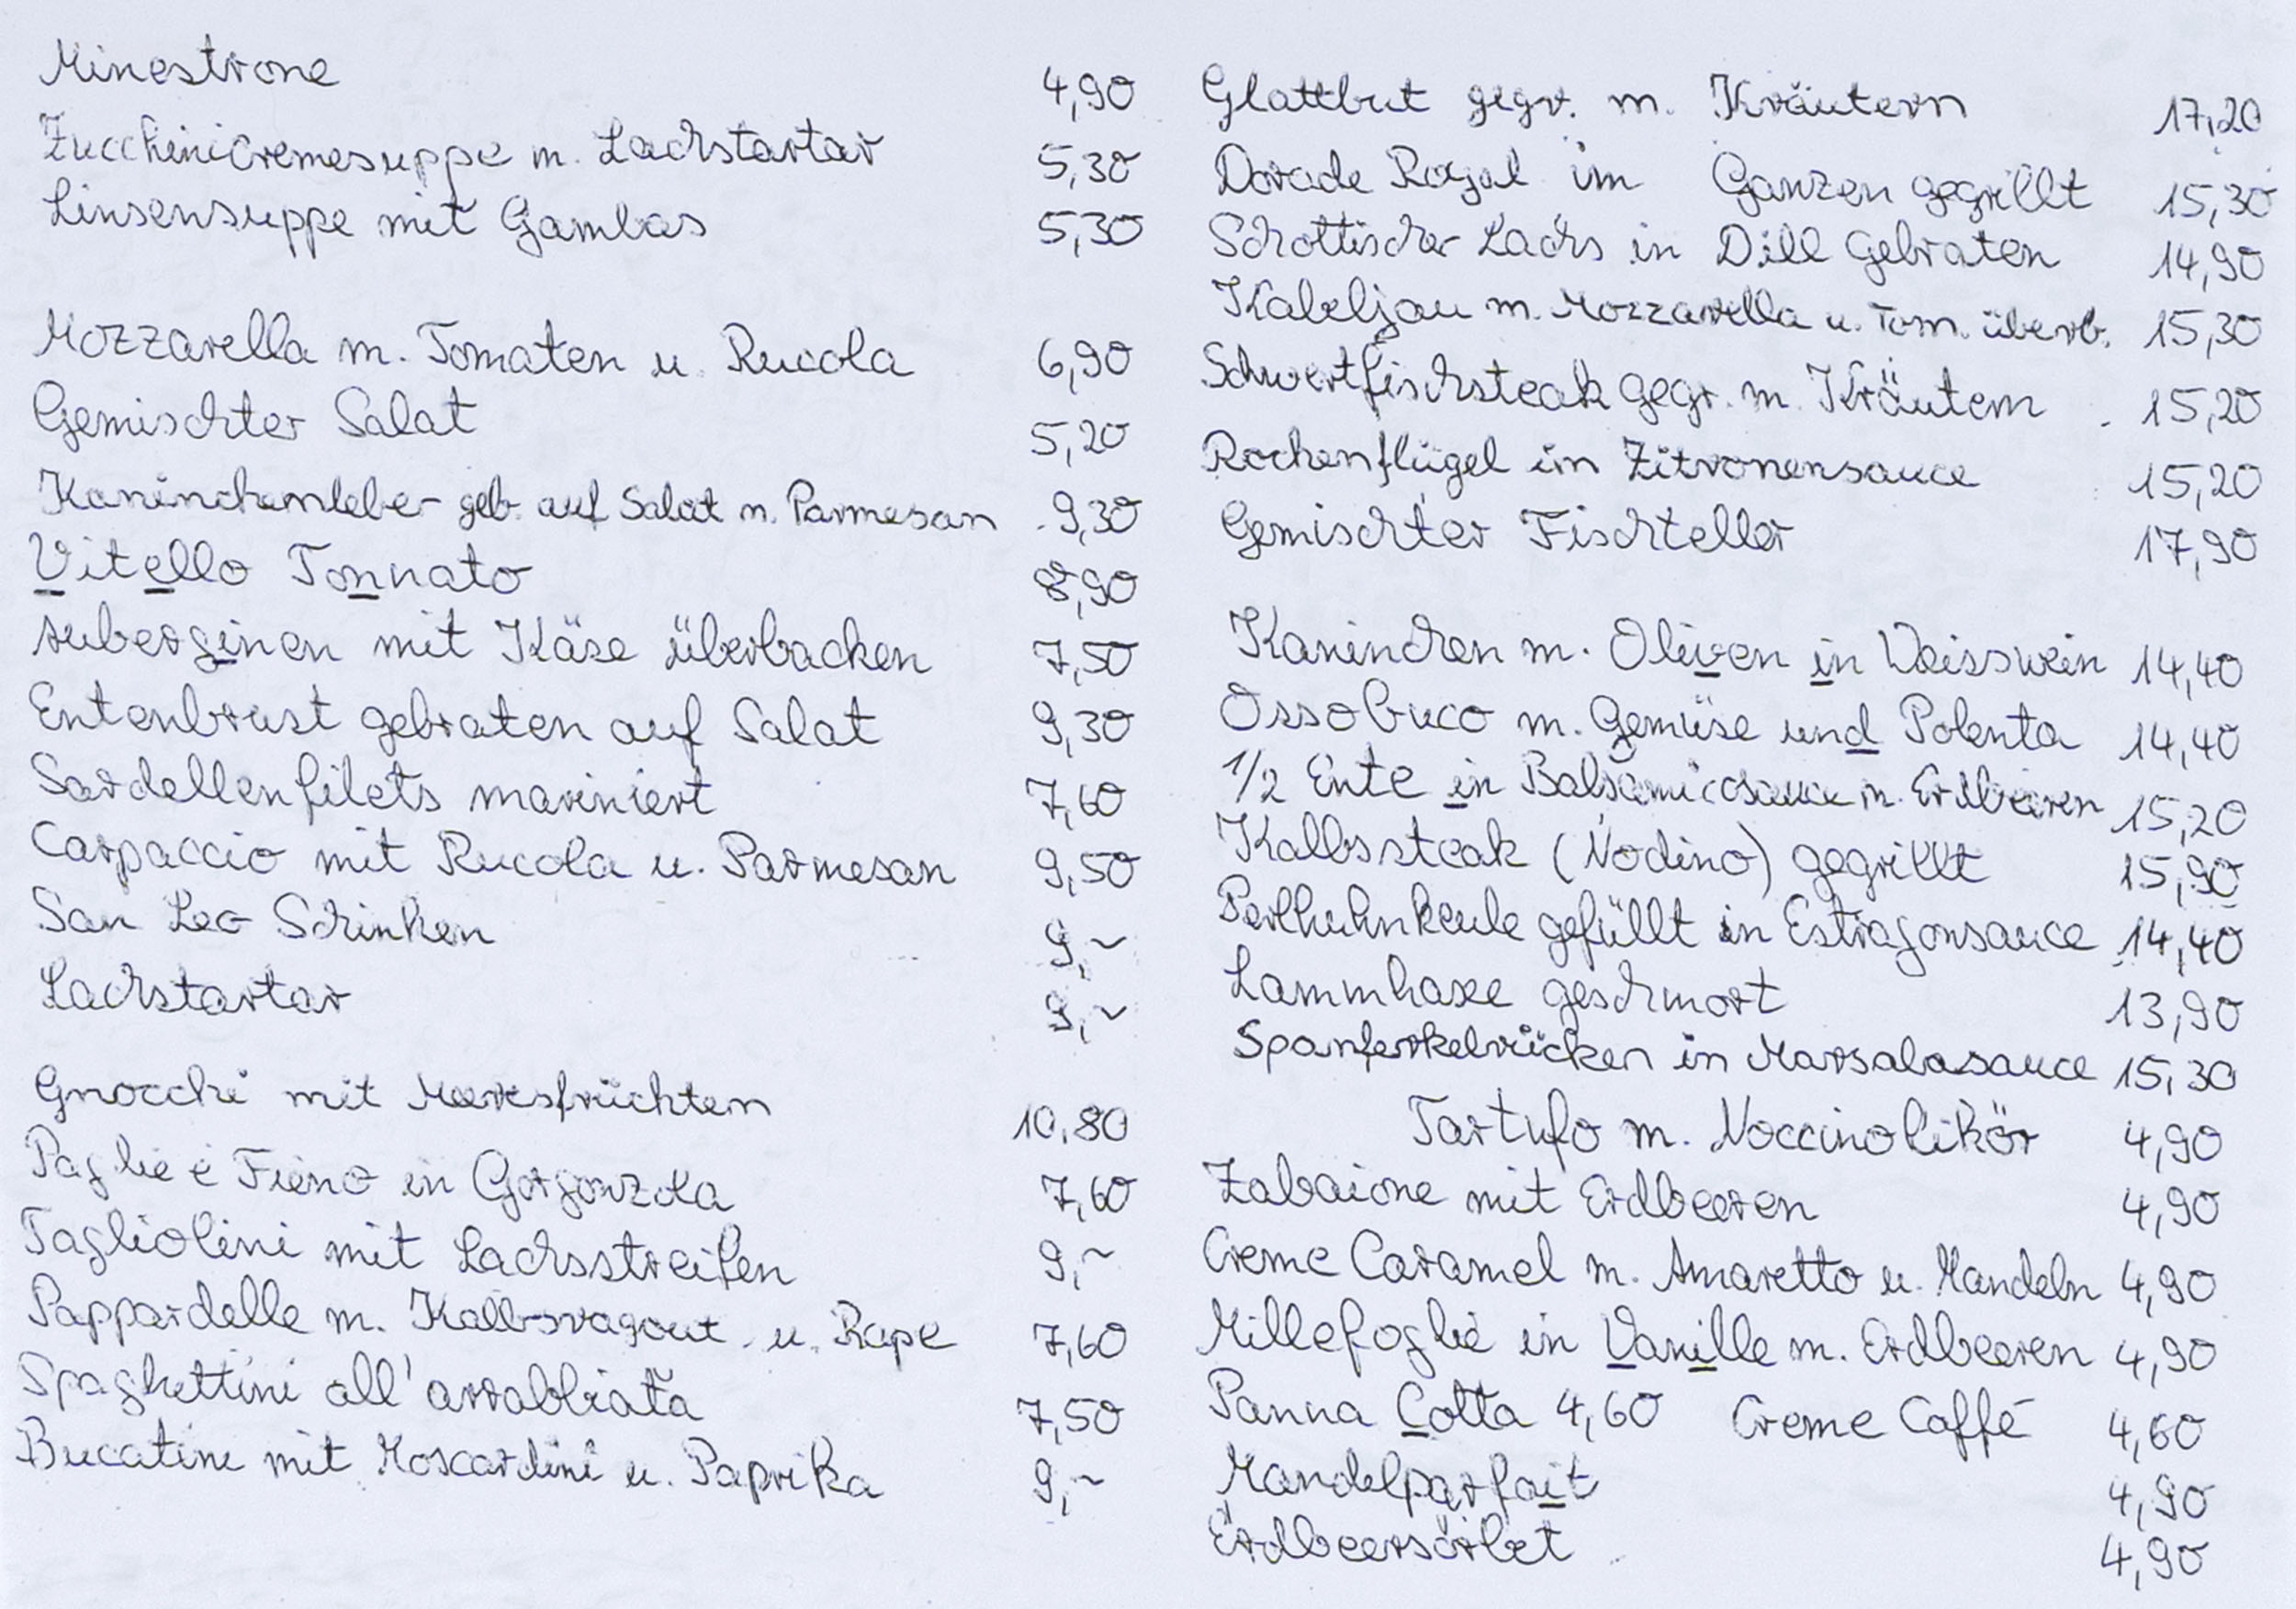 Minestrone 4,90
Zucchinicremesuppe m. Lachstartar 5,30
Linsensuppe mit Gambas 5,30
Mozzarella m. Tomaten u. Rucola 6,90
Gemischter Salat 5,20
Kaninchenleber geb. auf Salat m. Parmesan 9,30
Vitello Tonnato 8,90
Auberginen mit Käse überbacken 7,50
Entenbrust gebraten auf Salat 9,30
Sardellenfilets mariniert 7,60
Carpaccio mit Rucola u. Parmesan 9,50
San Leo Schinken 9,~
Lachstartar 9,~
Gnocchi mit Meeresfrüchten 10,80
Paglie e Fieno in Gorgonzola 7,60
Tagliolini mit Lachsstreifen 9,~
Pappardelle m. Kalbsragout u. Rape 7,60
Spaghettini all'arrabbiata 7,50
Bucatini mit Moscardini u. Paprika 9,~
Glattbut gegr. m. Kräutern 17,20
Dorade Royal im Ganzen gegrillt 15,30
Schottischer Lachs in Dill gebraten 14,90
Kabeljau m. Mozzarella u. Tom. überb. 15,30
Schwertfischsteak gegr. m. Kräutern 15,20
Rochenflügel im Zitronensauce 15,20
Gemischter Fischteller 17,90
Kaninchen m. Oliven in Weisswein 14,40
Ossobuco m. Gemüse und Polenta 14,40
1/2 Ente in Balsamicosauce m. Erdbeeren 15,20
Kalbssteak (Nodino) gegrillt 15,90
Perlhuhnkeule gefüllt in Estragonsauce 14,40
Lammhaxe geschmort 13,90
Spanferkelrücken in Marsalasauce 15,30
Tartufo m. Noccinolikör 4,90
Zabaione mit Erdbeeren 4,90
Creme Caramel m. Amaretto u. Mandeln 4,90
Millefoglie in Vanille m. Erdbeeren 4,90
Panna Cotta 4,60 Creme Caffé 4,60
Mandelparfait 4,90
Erdbeersorbet 4,90